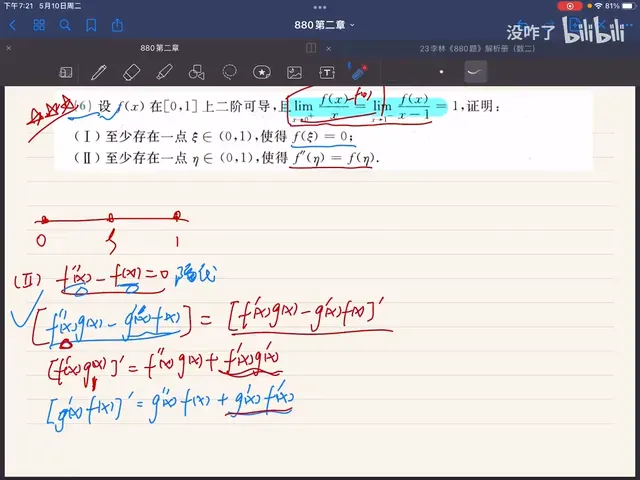 下午7:21 5月10日周二
81%
880第二章
没咋了 bilibili
880第二章
23李林《880题》解析册（数二）
(6) 设 f(x) 在[0,1]上二阶可导,且 lim_{x→0⁺} f(x)/x = lim_{x→1⁻} f(x)/(x-1) = 1,证明:
-f(0)
(Ⅰ) 至少存在一点 ξ∈(0,1),使得 f(ξ)=0;
(Ⅱ) 至少存在一点 η∈(0,1),使得 f″(η)=f(η).
0 ξ 1
(Ⅱ) f″(x) - f(x) = 0
[f″(x)g(x) - g″(x)f(x)] = [f′(x)g(x) - g′(x)f(x)]′
[f′(x)g(x)]′ = f″(x)g(x) + f′(x)g′(x)
[g′(x)f(x)]′ = g″(x)f(x) + g′(x)f′(x)